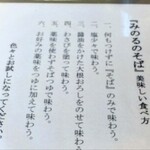 『みのるのそば』美味しい食べ方
一、何もつけずに『そば』のみで味わう。
二、塩少々で味わう。
三、醤油をかけた大根おろしをのせて味わう。
四、わさびを塗って味わう。
五、薬味を使わずそばつゆで味わう。
六、お好みの薬味をつゆに加えて味わう。
色々とお試しになってください。